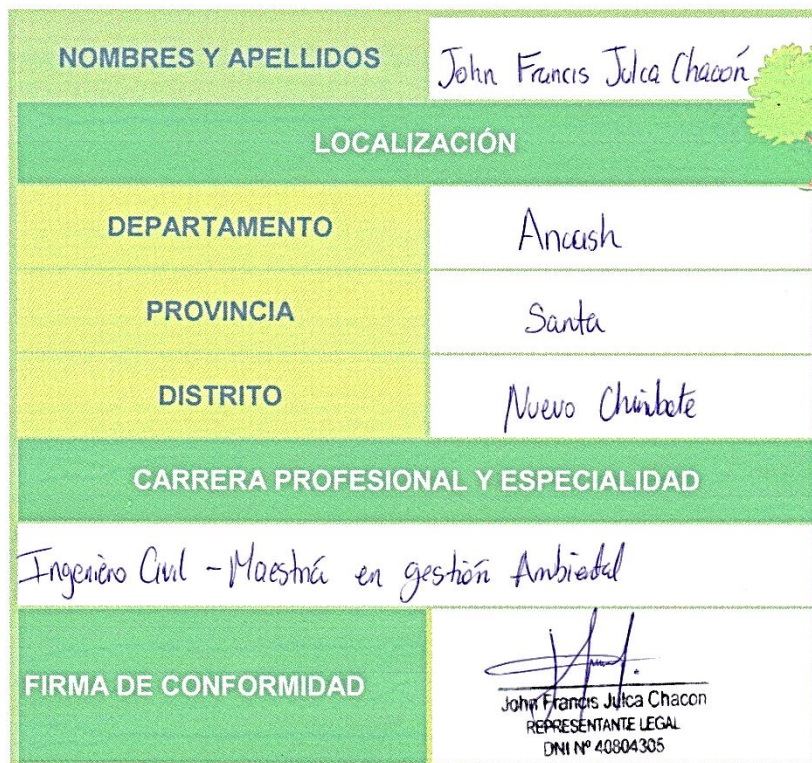 NOMBRES Y APELLIDOS
John Francis Julca Chacón
LOCALIZACIÓN
DEPARTAMENTO
Ancash
PROVINCIA
Santa
DISTRITO
Nuevo Chimbote
CARRERA PROFESIONAL Y ESPECIALIDAD
Ingeniero Civil - Maestría en gestión Ambiental
FIRMA DE CONFORMIDAD
John Francis Julca Chacon
REPRESENTANTE LEGAL
DNI Nº 40804305